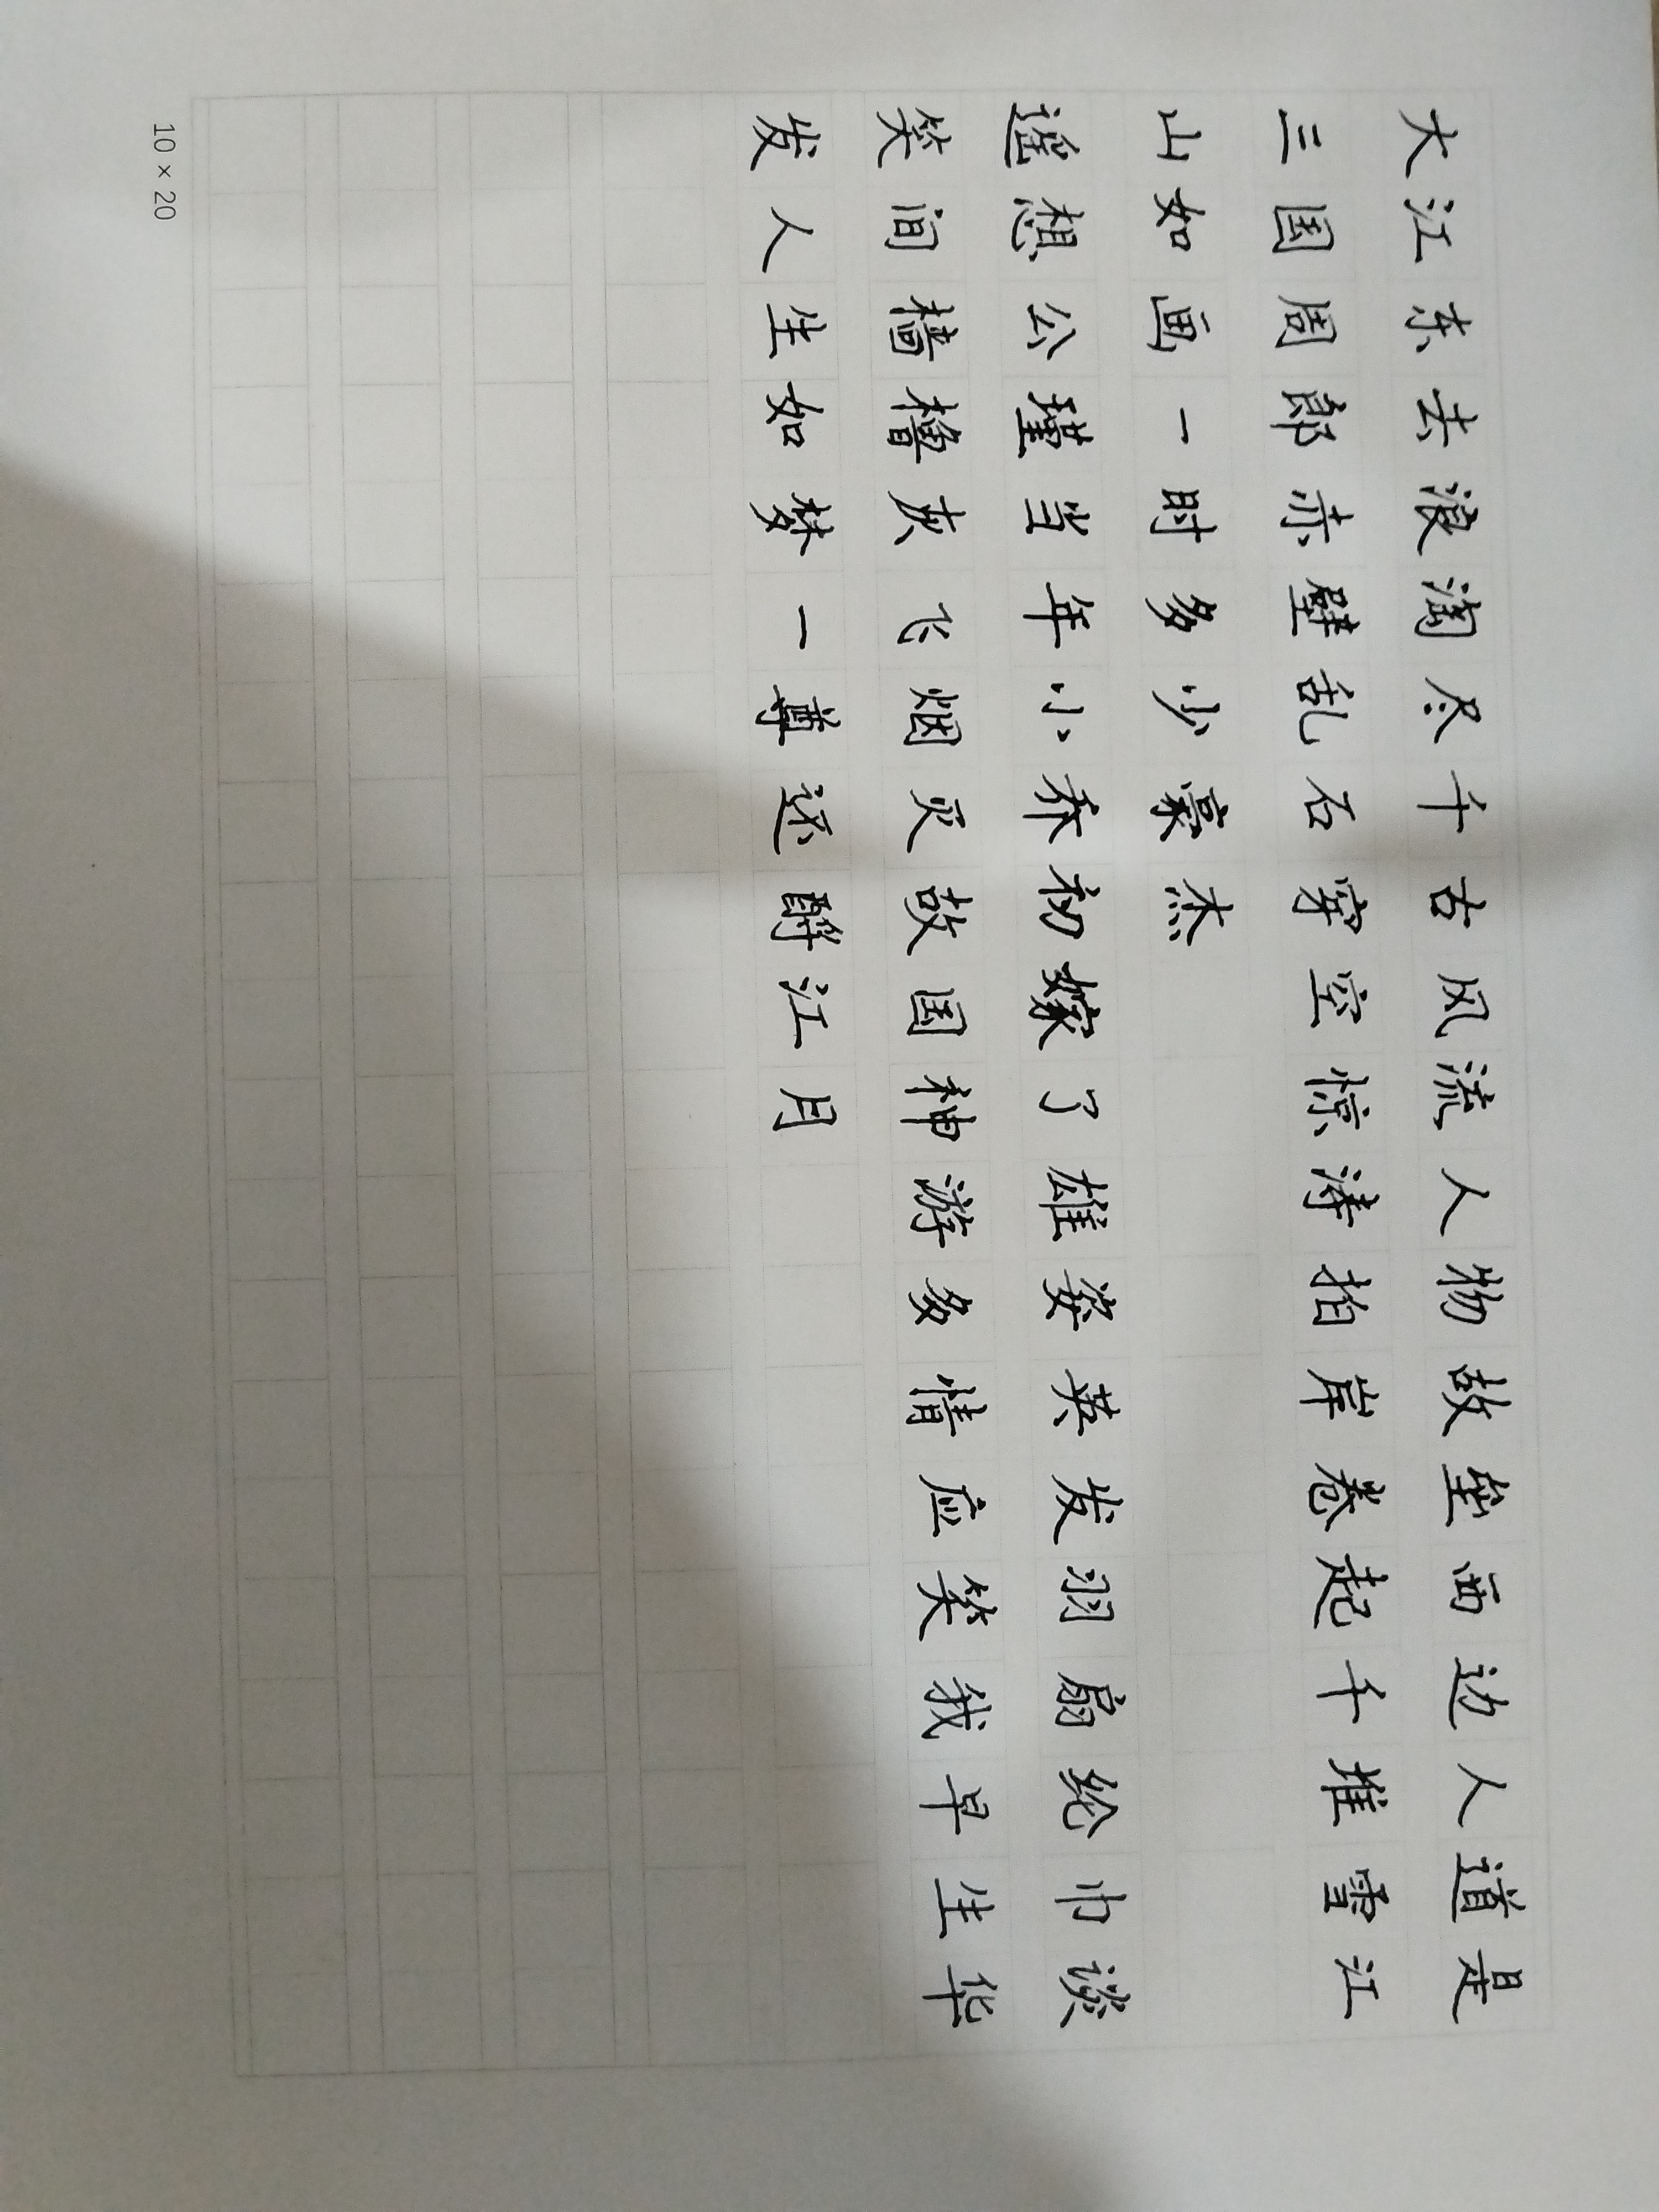 大江东去浪淘尽千古风流人物故垒西边人道是
三国周郎赤壁乱石穿空惊涛拍岸卷起千堆雪江
山如画一时多少豪杰
遥想公瑾当年小乔初嫁了雄姿英发羽扇纶巾谈
笑间樯橹灰飞烟灭故国神游多情应笑我早生华
发人生如梦一尊还酹江月
10 × 20